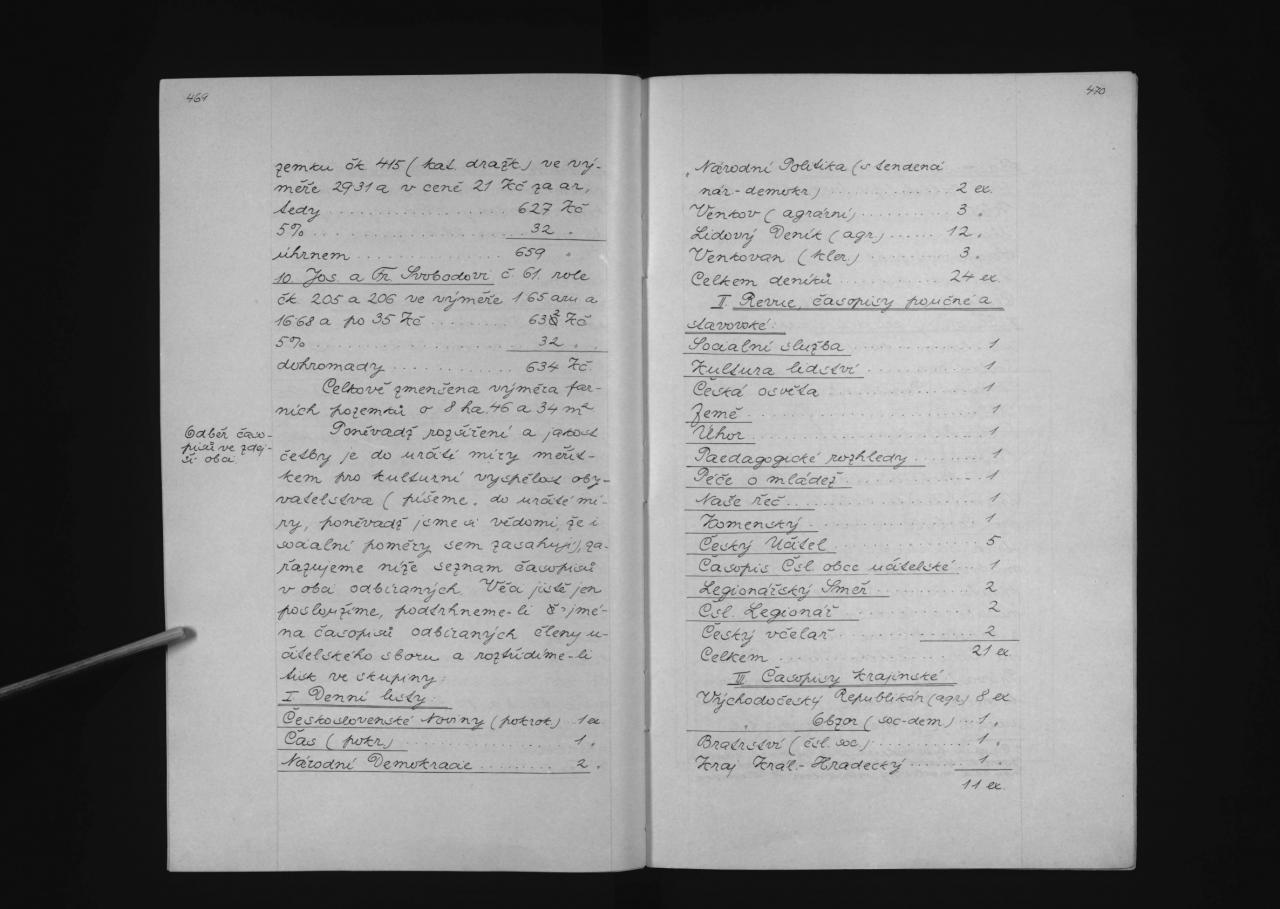 469
zemku čk 415 (kat. dražk.) ve vý-
měře 2931 a v ceně 21 Kč za ar,
tedy .................... 627 Kč
5% .................... 32 „
úhrnem .................... 659 „
10. Jos. a Fr. Svobodovi č. 61. role
čk 205 a 206 ve výměře 1.65 aru a
16.68 a po 35 Kč ......... 632 Kč
5% .................... 32 „
dohromady ............ 634 Kč.
Celkově zmenšena výměra far-
ních pozemků o 8 ha 46 a 34 m²
Odběr časo-
pisů ve zdej-
ší obci.
Poněvadž rozšíření a jakost
četby je do určité míry měřít-
kem pro kulturní vyspělost oby-
vatelstva (píšeme „do určité mí-
ry, poněvadž jsme si vědomi, že i
sociální poměry sem zasahují), za-
řazujeme níže seznam časopisů
v obci odbíraných. Věci jistě jen
posloužíme, podtrhneme-li jmé-
na časopisů odbíraných členy u-
čitelského sboru a roztřídíme-li
tisk ve skupiny:
I. Denní listy:
Československé Noviny (pokrok.) 1 ex
Čas (pokr.) .................... 1 „
Národní Demokracie ......... 2 „
470
„Národní Politika (s tendencí
nár-demokr.) ............ 2 ex.
Venkov (agrární) ............ 3 „
Lidový Deník (agr.) ...... 12 „
Venkovan (kler.) ............ 3 „
Celkem deníků ............ 24 ex.
II. Revue, časopisy poučné a
stavovské:
Sociální služba ............ 1
Kultura lidství ............ 1
Česká osvěta ............ 1
Země ............ 1
Úhor ............ 1
Paedagogické rozhledy ......... 1
Péče o mládež ............ 1
Naše řeč ............ 1
Komenský ............ 1
Český Učitel ............ 5
Časopis Čsl. obce učitelské ... 1
Legionářský Směr ............ 2
Čsl. Legionář ............ 2
Český včelař ............ 2
Celkem ............ 21 ex.
III. Časopisy krajinské
Východočeský Republikán (agr.) 8 ex
„ Obzor (soc-dem) ... 1 „
Bratrství (čsl. soc.) ............ 1 „
Kraj Král.-Hradecký ...... 1 „
11 ex.